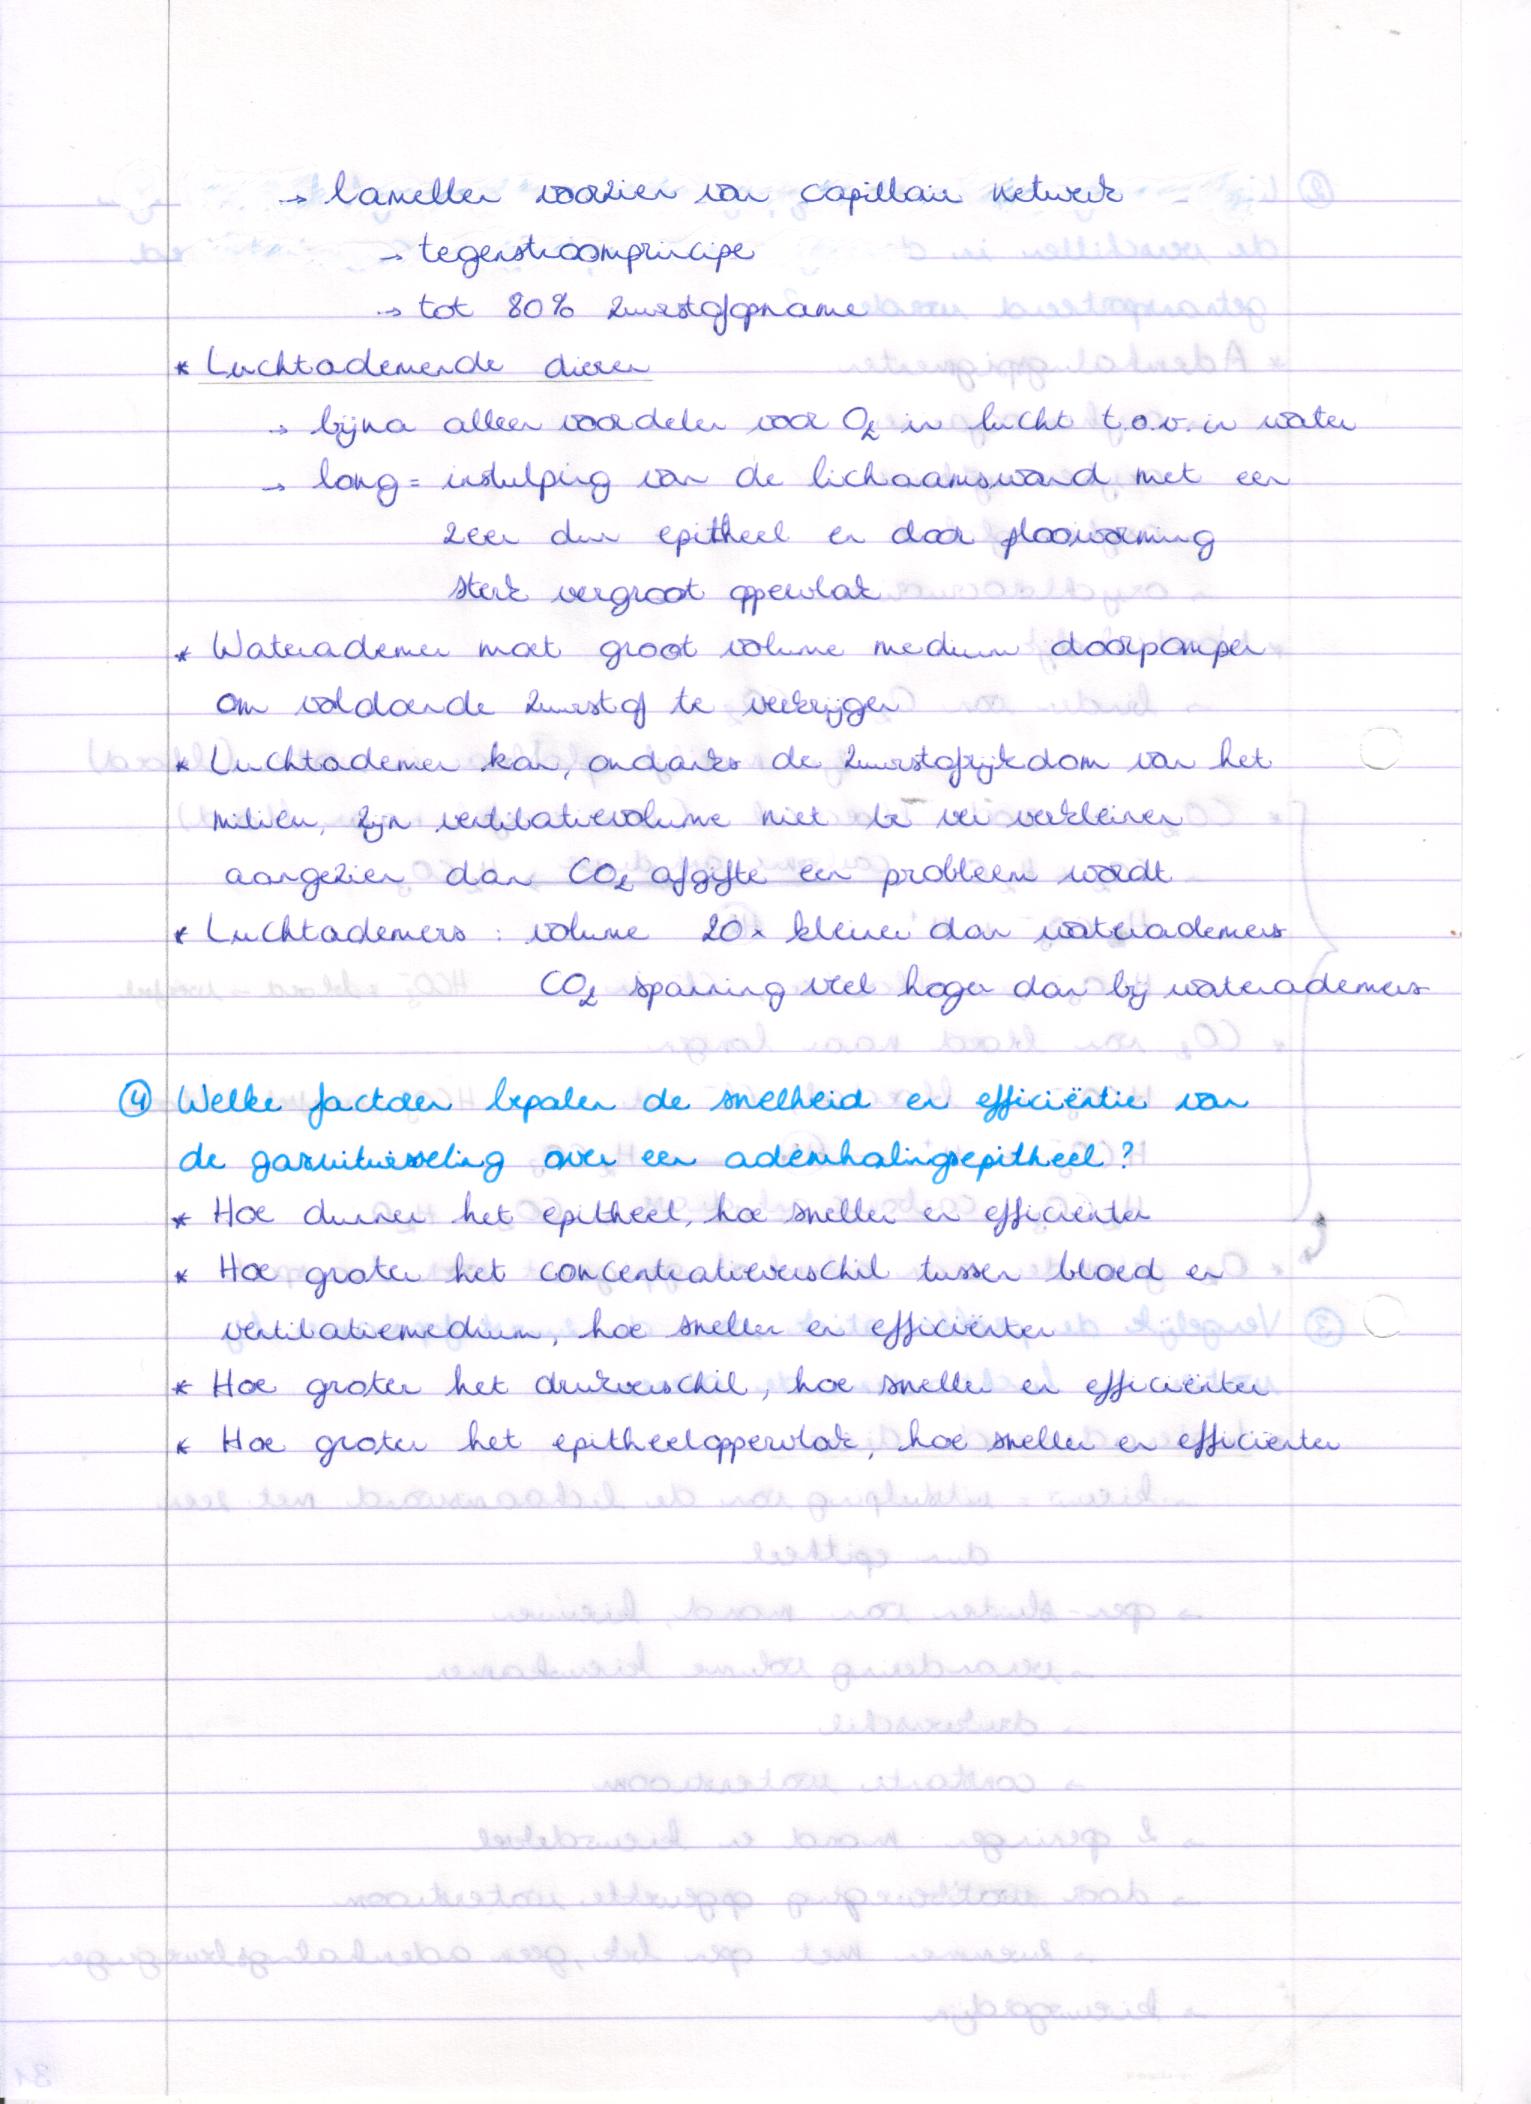 → lamellen voorzien van capillair netwerk
→ tegenstroomprincipe
→ tot 80% zuurstofopname
* Luchtademende dieren
→ bijna alleen voordelen voor O₂ in lucht t.o.v. in water
→ long = instulping van de lichaamswand met een
zeer dun epitheel en door plooivorming
sterk vergroot oppervlak
* Waterademer moet groot volume medium doorpompen
om voldoende zuurstof te verkrijgen
* Luchtademer kan, ondanks de zuurstofrijkdom van het
milieu, zijn ventilatievolume niet te ver verkleinen
aangezien dan CO₂ afgifte een probleem wordt
* Luchtademers : volume 20x kleiner dan waterademers
CO₂ spanning veel hoger dan bij waterademers
④ Welke factoren bepalen de snelheid en efficiëntie van
de gasuitwisseling over een ademhalingsepitheel?
* Hoe dunner het epitheel, hoe sneller en efficiënter
* Hoe groter het concentratieverschil tussen bloed en
ventilatiemedium, hoe sneller en efficiënter
* Hoe groter het drukverschil, hoe sneller en efficiënter
* Hoe groter het epitheeloppervlak, hoe sneller en efficiënter